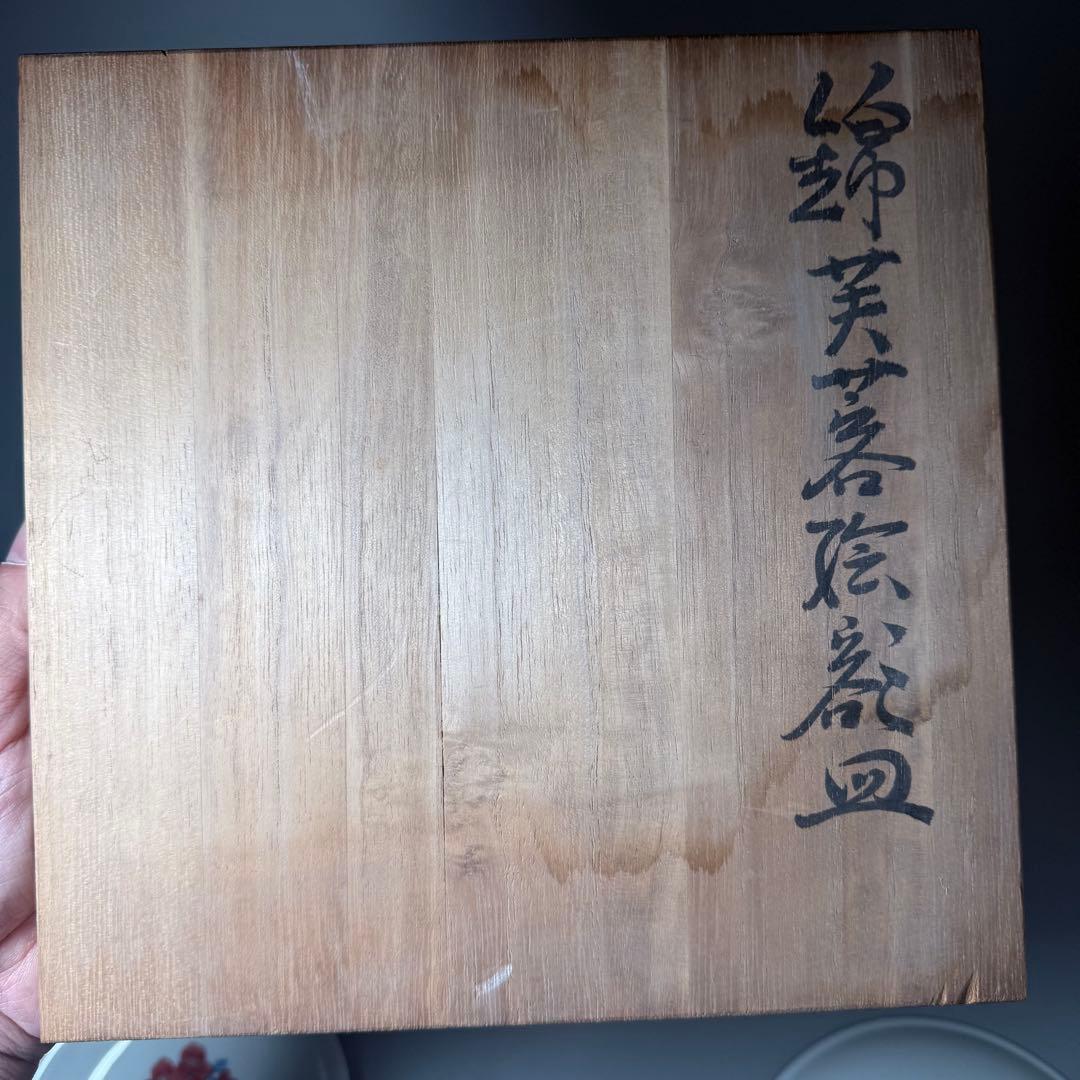 錦芙蓉絵額皿